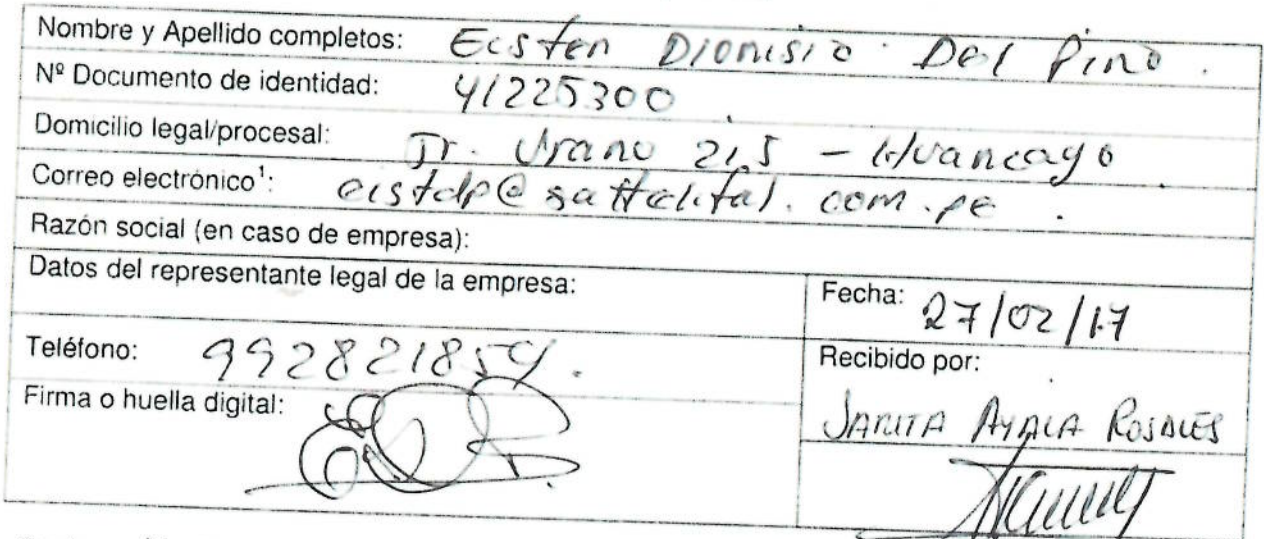 Nombre y Apellido completos: Eisten Dionisio Del Pino.
Nº Documento de identidad: 41225300
Domicilio legal/procesal: Jr. Urano 215 - Huancayo
Correo electrónico¹: eistdp@sattelital.com.pe.
Razón social (en caso de empresa):
Datos del representante legal de la empresa:
Fecha: 27/02/17
Teléfono: 992821854.
Recibido por:
Firma o huella digital:
AYALA ROSALES